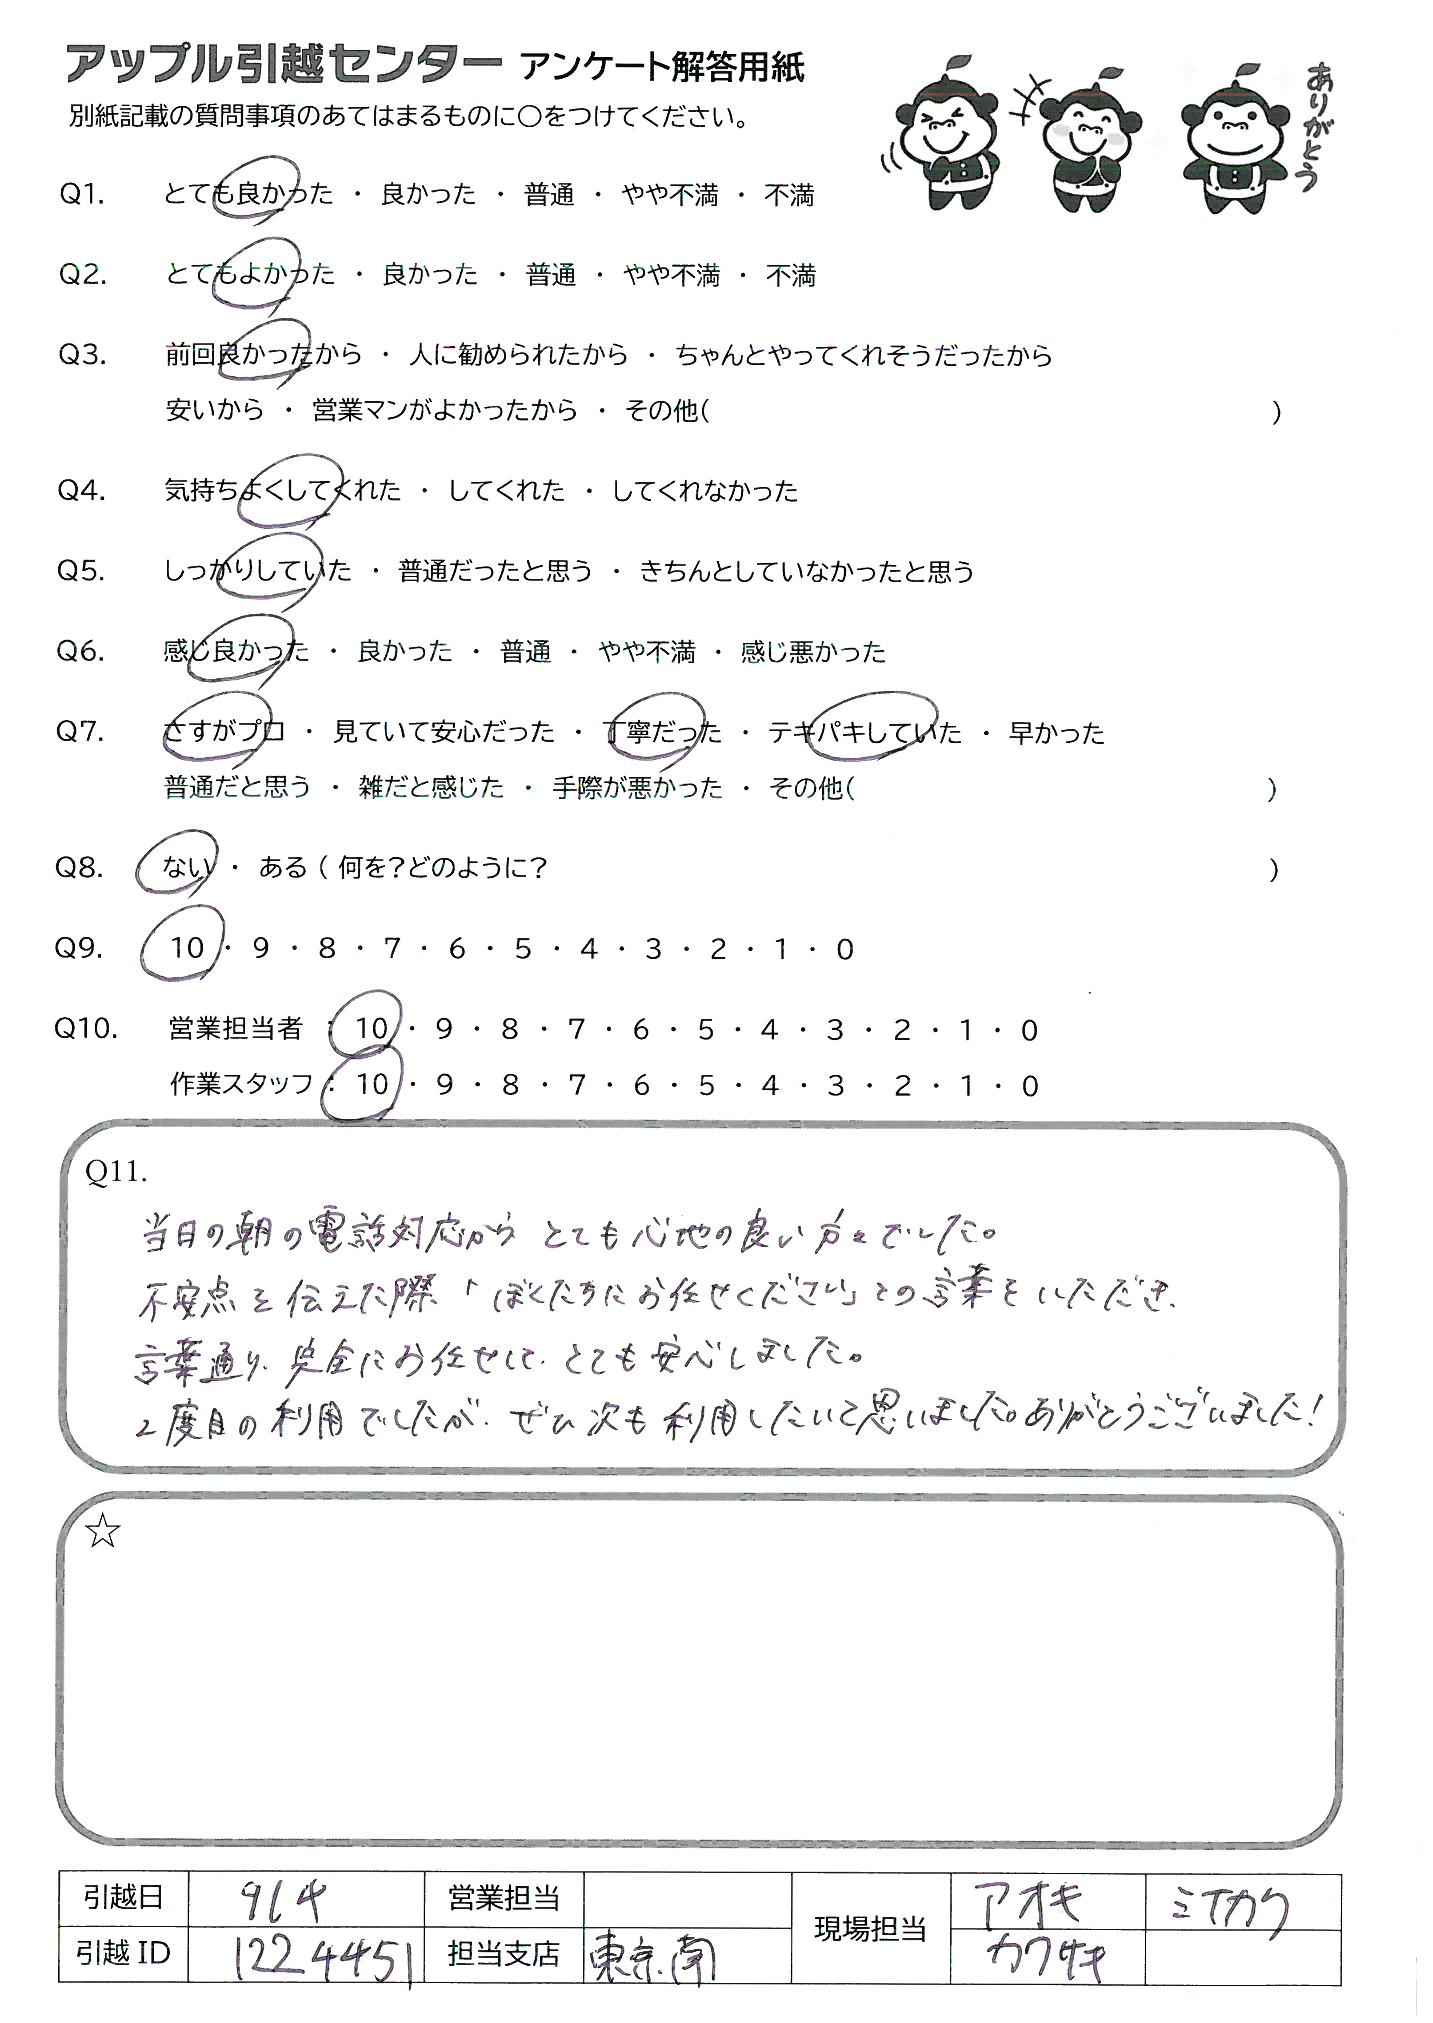 アップル引越センター アンケート解答用紙
別紙記載の質問事項のあてはまるものに○をつけてください。
ありがとう
Q1. とても良かった ・ 良かった ・ 普通 ・ やや不満 ・ 不満
Q2. とてもよかった ・ 良かった ・ 普通 ・ やや不満 ・ 不満
Q3. 前回良かったから ・ 人に勧められたから ・ ちゃんとやってくれそうだったから
安いから ・ 営業マンがよかったから ・ その他( )
Q4. 気持ちよくしてくれた ・ してくれた ・ してくれなかった
Q5. しっかりしていた ・ 普通だったと思う ・ きちんとしていなかったと思う
Q6. 感じ良かった ・ 良かった ・ 普通 ・ やや不満 ・ 感じ悪かった
Q7. さすがプロ ・ 見ていて安心だった ・ 丁寧だった ・ テキパキしていた ・ 早かった
普通だと思う ・ 雑だと感じた ・ 手際が悪かった ・ その他( )
Q8. ない ・ ある ( 何を?どのように? )
Q9. 10 ・ 9 ・ 8 ・ 7 ・ 6 ・ 5 ・ 4 ・ 3 ・ 2 ・ 1 ・ 0
Q10. 営業担当者 : 10 ・ 9 ・ 8 ・ 7 ・ 6 ・ 5 ・ 4 ・ 3 ・ 2 ・ 1 ・ 0
作業スタッフ : 10 ・ 9 ・ 8 ・ 7 ・ 6 ・ 5 ・ 4 ・ 3 ・ 2 ・ 1 ・ 0
Q11.
当日の朝の電話対応から とても心地の良い方々でした。
不安点を伝えた際、「ぼくたちにお任せください」との言葉をいただき、
言葉通り、完全にお任せして、とても安心しました。
2度目の利用でしたが、ぜひ次も利用したいと思いました。ありがとうございました!
☆
引越日 9/4 営業担当 現場担当 アオキ ミナカク
引越ID 1224451 担当支店 東京南 カワサキ